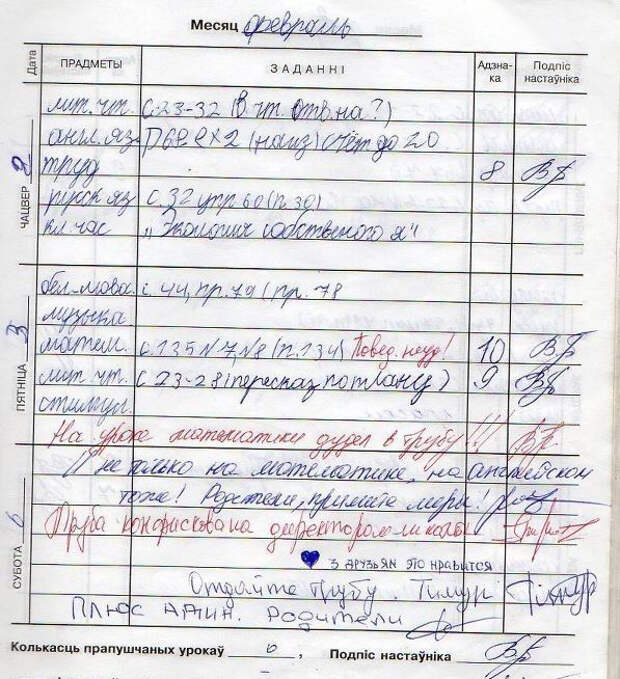 Месяц февраль
Дата ПРАДМЕТЫ ЗАДАННІ Адзнака Подпіс настаўніка
ЧАЦВЕР 2
лит. чт. с. 23-32 (В. чт. отв. на ?)
англ. яз. (наиз) счёт до 20
труд 8
русск яз с. 32 упр 60 (п. 30)
кл. час „Экология собственного я"
ПЯТНІЦА 3
бел-мова с. 44, пр. 79 (пр. 78
музыка
матем. с. 135 №7, №8 (п. 134) Повед. неуд! 10
лит. чт. с 23-28 (пересказ по плану) 9
стимул.
На уроке математики дудел в трубу!!!
СУБОТА
И не только на математике, на английском
тоже! Родители, примите меры!
Труба конфискована директором школы
3 друзьям это нравится
Отдайте трубу. Тимур
Плюс адин. Родители
Колькасць прапушчаных урокаў 0, Подпіс настаўніка